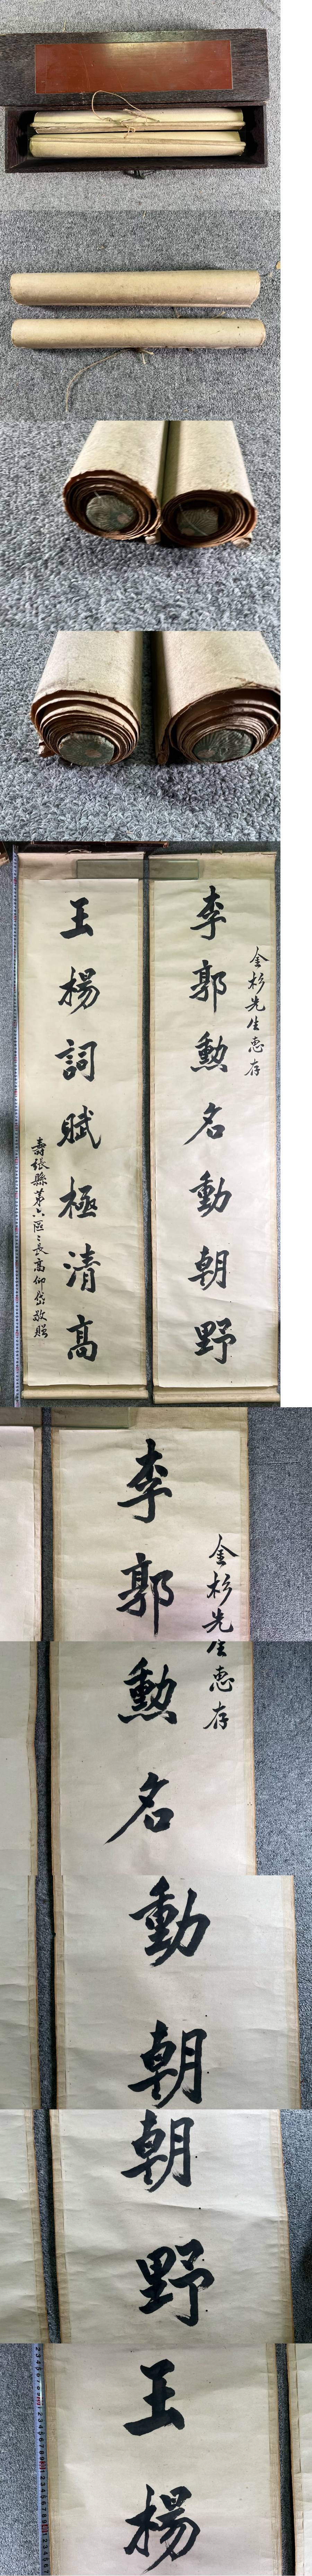 李郭勲名動朝野
金杉先生惠存
王楊詞賦極清高
壽張縣第六區〻長高仰岱敬贈
李郭
金杉先
生惠存
勲名
動朝
朝野
王楊